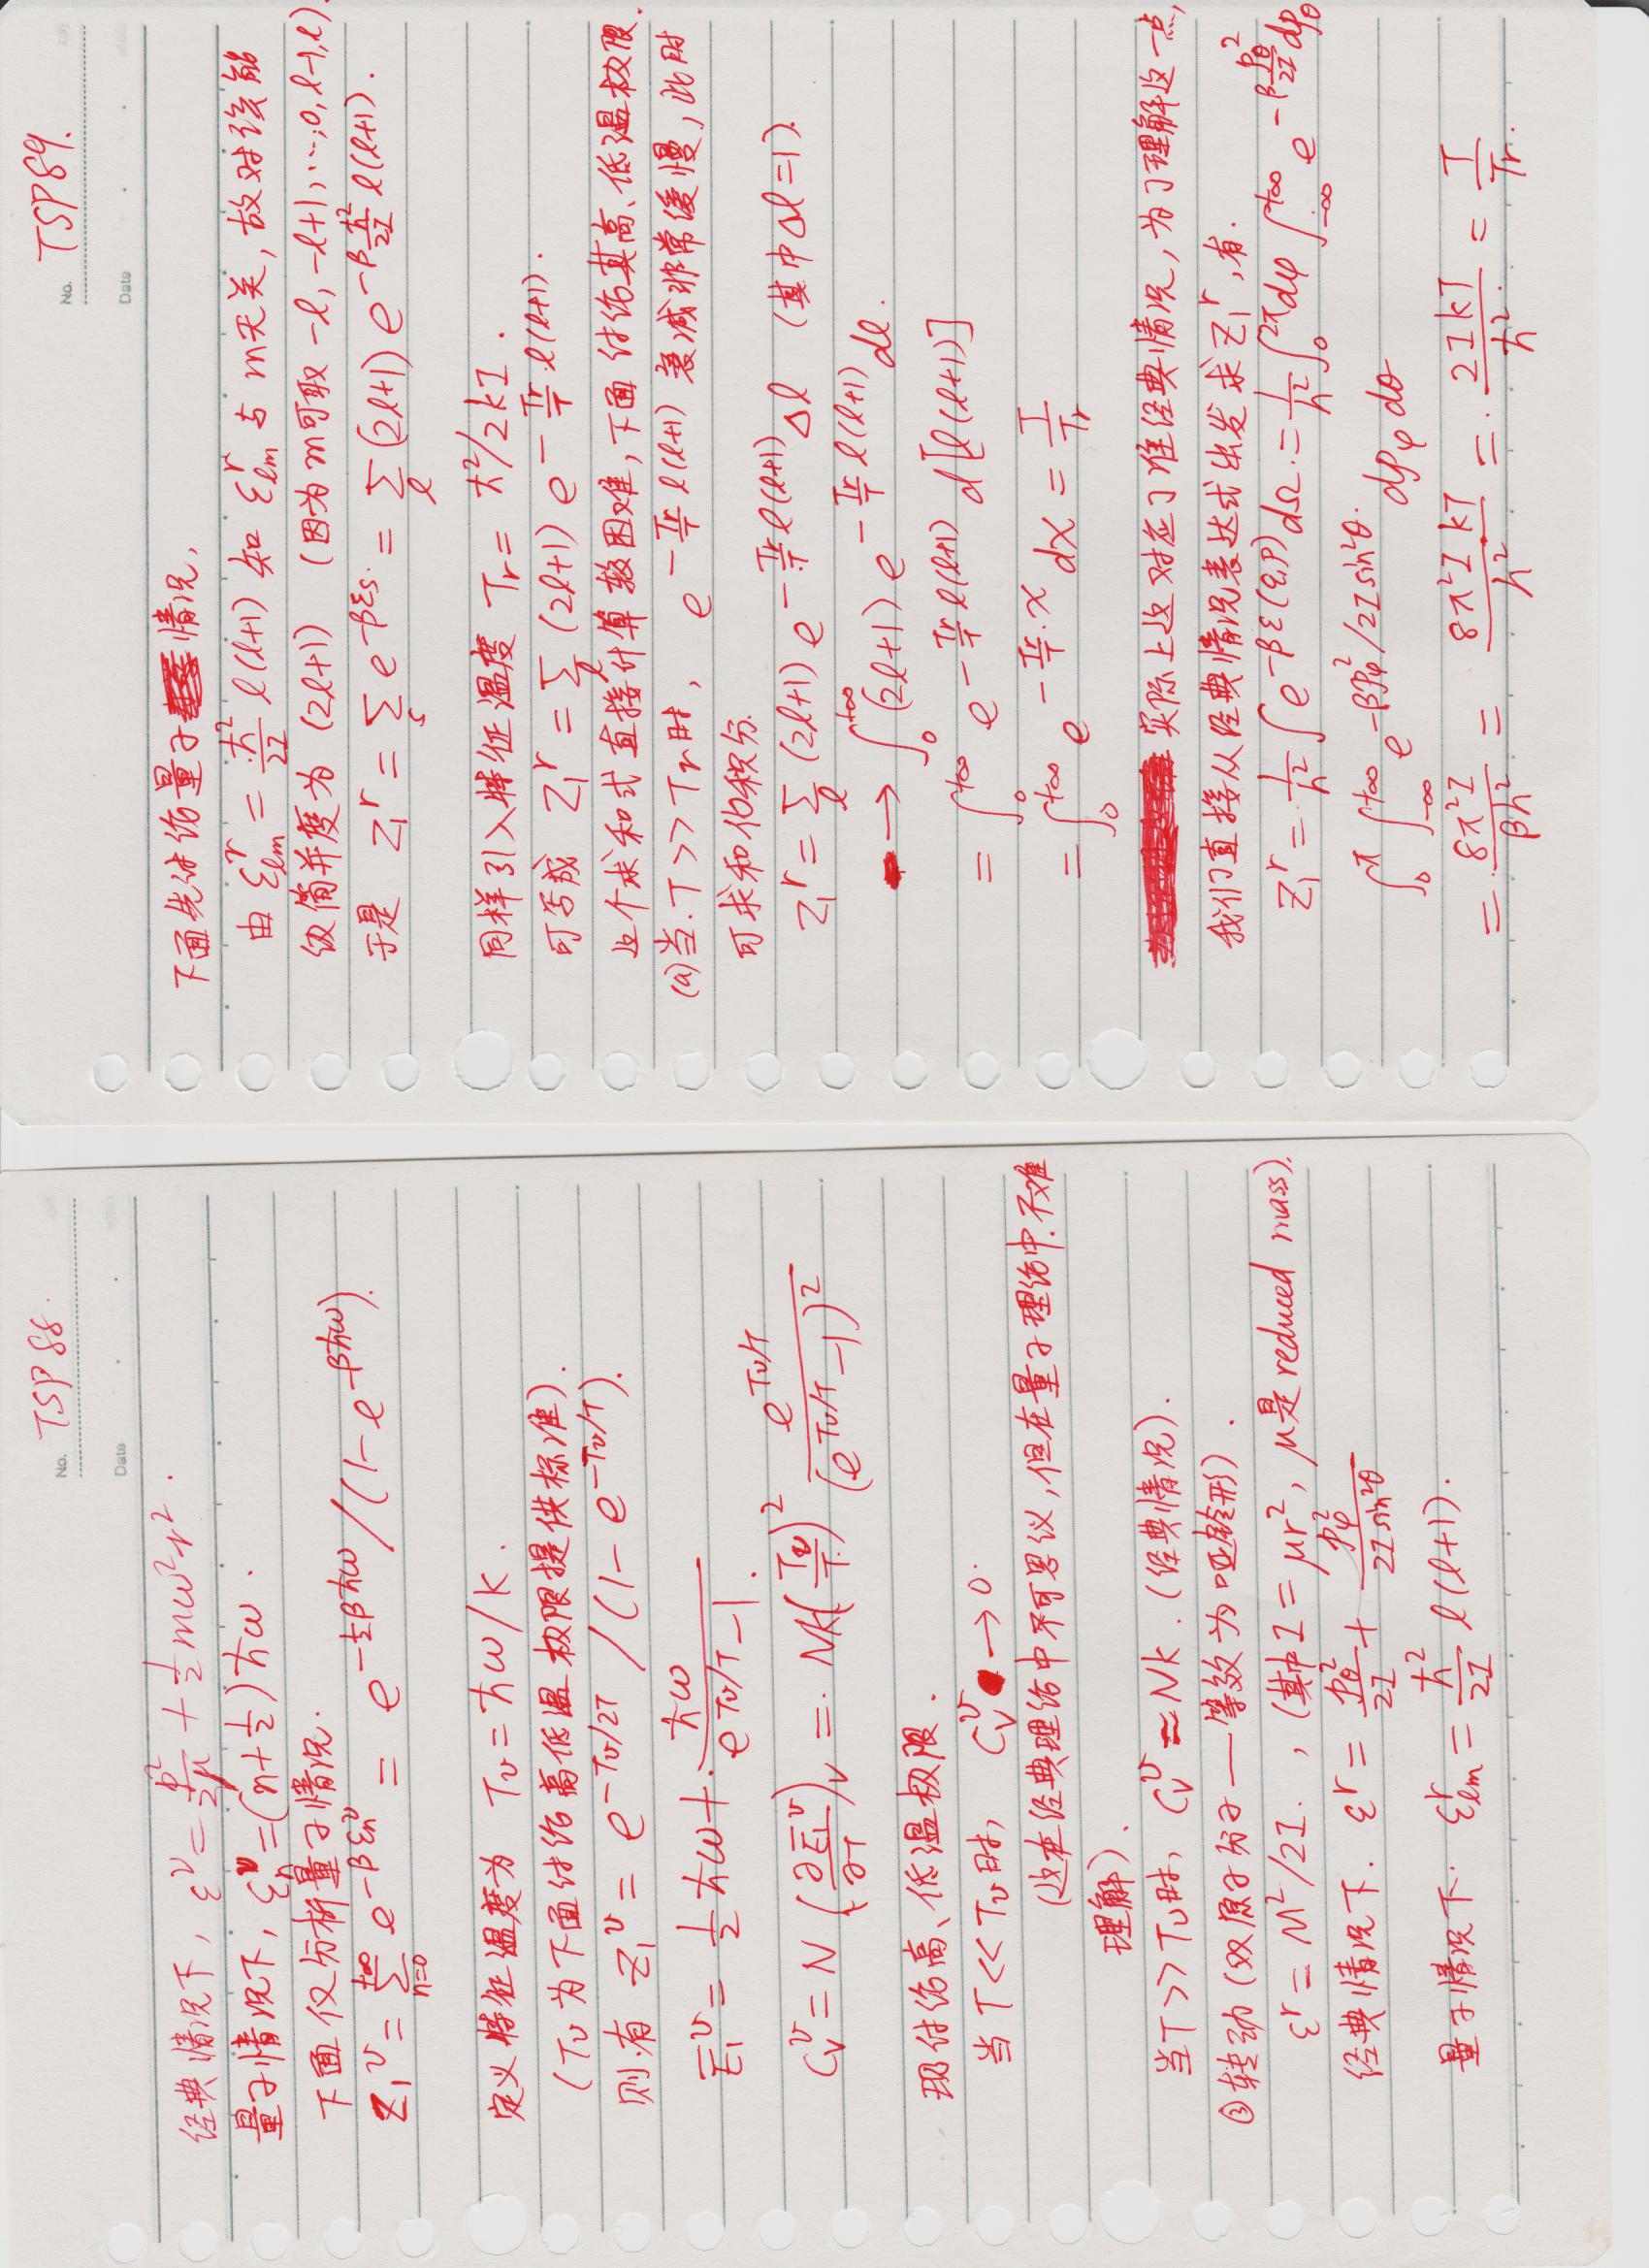 No. TSP 88.
Date
经典情况下, ε^v = p²/2μ + ½mω²r².
量子情况下, ε_n^v = (n+½)ħω.
下面仅分析量子情况.
Z₁^v = Σ_{n=0}^{+∞} e^{-βε_n^v} = e^{-½βħω}/(1-e^{-βħω}).
定义特征温度为 T_v = ħω/k.
(T_v为下面讨论高低温极限提供标准).
则有 Z₁^v = e^{-T_v/2T}/(1-e^{-T_v/T}).
Ē₁^v = ½ħω + ħω/(e^{T_v/T}-1).
C_V^v = N(∂Ē₁^v/∂T)_V = Nk(T_v/T)² e^{T_v/T}/(e^{T_v/T}-1)²
现讨论高、低温极限.
当T<<T_v时, C_V^v → 0.
(这在经典理论中不可思议, 但在量子理论中不难
理解).
当T>>T_v时, C_V^v ≈ Nk. (经典情况).
③转动(双原子分子—等效为哑铃形).
ε^r = M²/2I. , (其中I=μr², μ是reduced mass).
经典情况下. ε^r = p_θ²/2I + p_φ²/2I sin²θ
量子情况下. ε_{lm}^r = ħ²/2I l(l+1).
No. TSP 89.
Date
下面先讨论量子情况,
由 ε_{lm}^r = ħ²/2I l(l+1) 知 ε_{lm}^r 与m无关, 故对该能
级简并度为 (2l+1) (因为m可取 -l, -l+1, ..., 0, l-1, l)
于是 Z₁^r = Σ_s e^{-βε_s} = Σ_l (2l+1) e^{-β ħ²/2I l(l+1)}.
同样引入特征温度 T_r = ħ²/2kI.
可写成 Z₁^r = Σ_l (2l+1) e^{-T_r/T l(l+1)}.
这个求和式直接计算较困难, 下面讨论其高、低温极限.
(a)当T>>T_r时, e^{-T_r/T l(l+1)} 衰减非常缓慢, 此时
可求和化积分.
Z₁^r = Σ_l (2l+1) e^{-T_r/T l(l+1)} Δl (其中Δl=1).
→ ∫_0^{+∞} (2l+1) e^{-T_r/T l(l+1)} dl.
= ∫_0^{+∞} e^{-T_r/T l(l+1)} d[l(l+1)]
= ∫_0^{+∞} e^{-T_r/T·x} dx = T/T_r
实际上这对应了准经典情况, 为了理解这一点,
我们直接从经典情况表达式出发求Z₁^r, 有.
Z₁^r = 1/h² ∫ e^{-βε(q,p)} dΩ = 1/h² ∫_0^{2π} dφ ∫_{-∞}^{+∞} e^{-β p_θ²/2I} dp_θ
∫_0^π ∫_{-∞}^{+∞} e^{-βp_φ²/2I sin²θ} dp_φ dθ
= 8π²I/βh² = 8π²I kT/h² = 2IkT/ħ² = T/T_r.